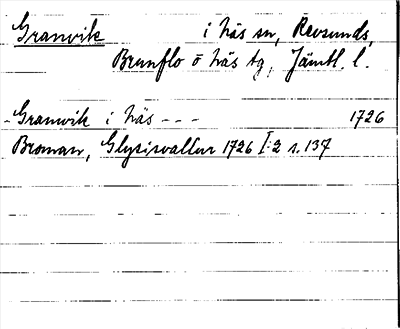 Granvik i Näs sn, Revsunds,
Brunflo o Näs tg, Jämtl. l.
Granwik i Näs - - - 1726
Broman, Glysisvallur 1726 I:2 s. 137